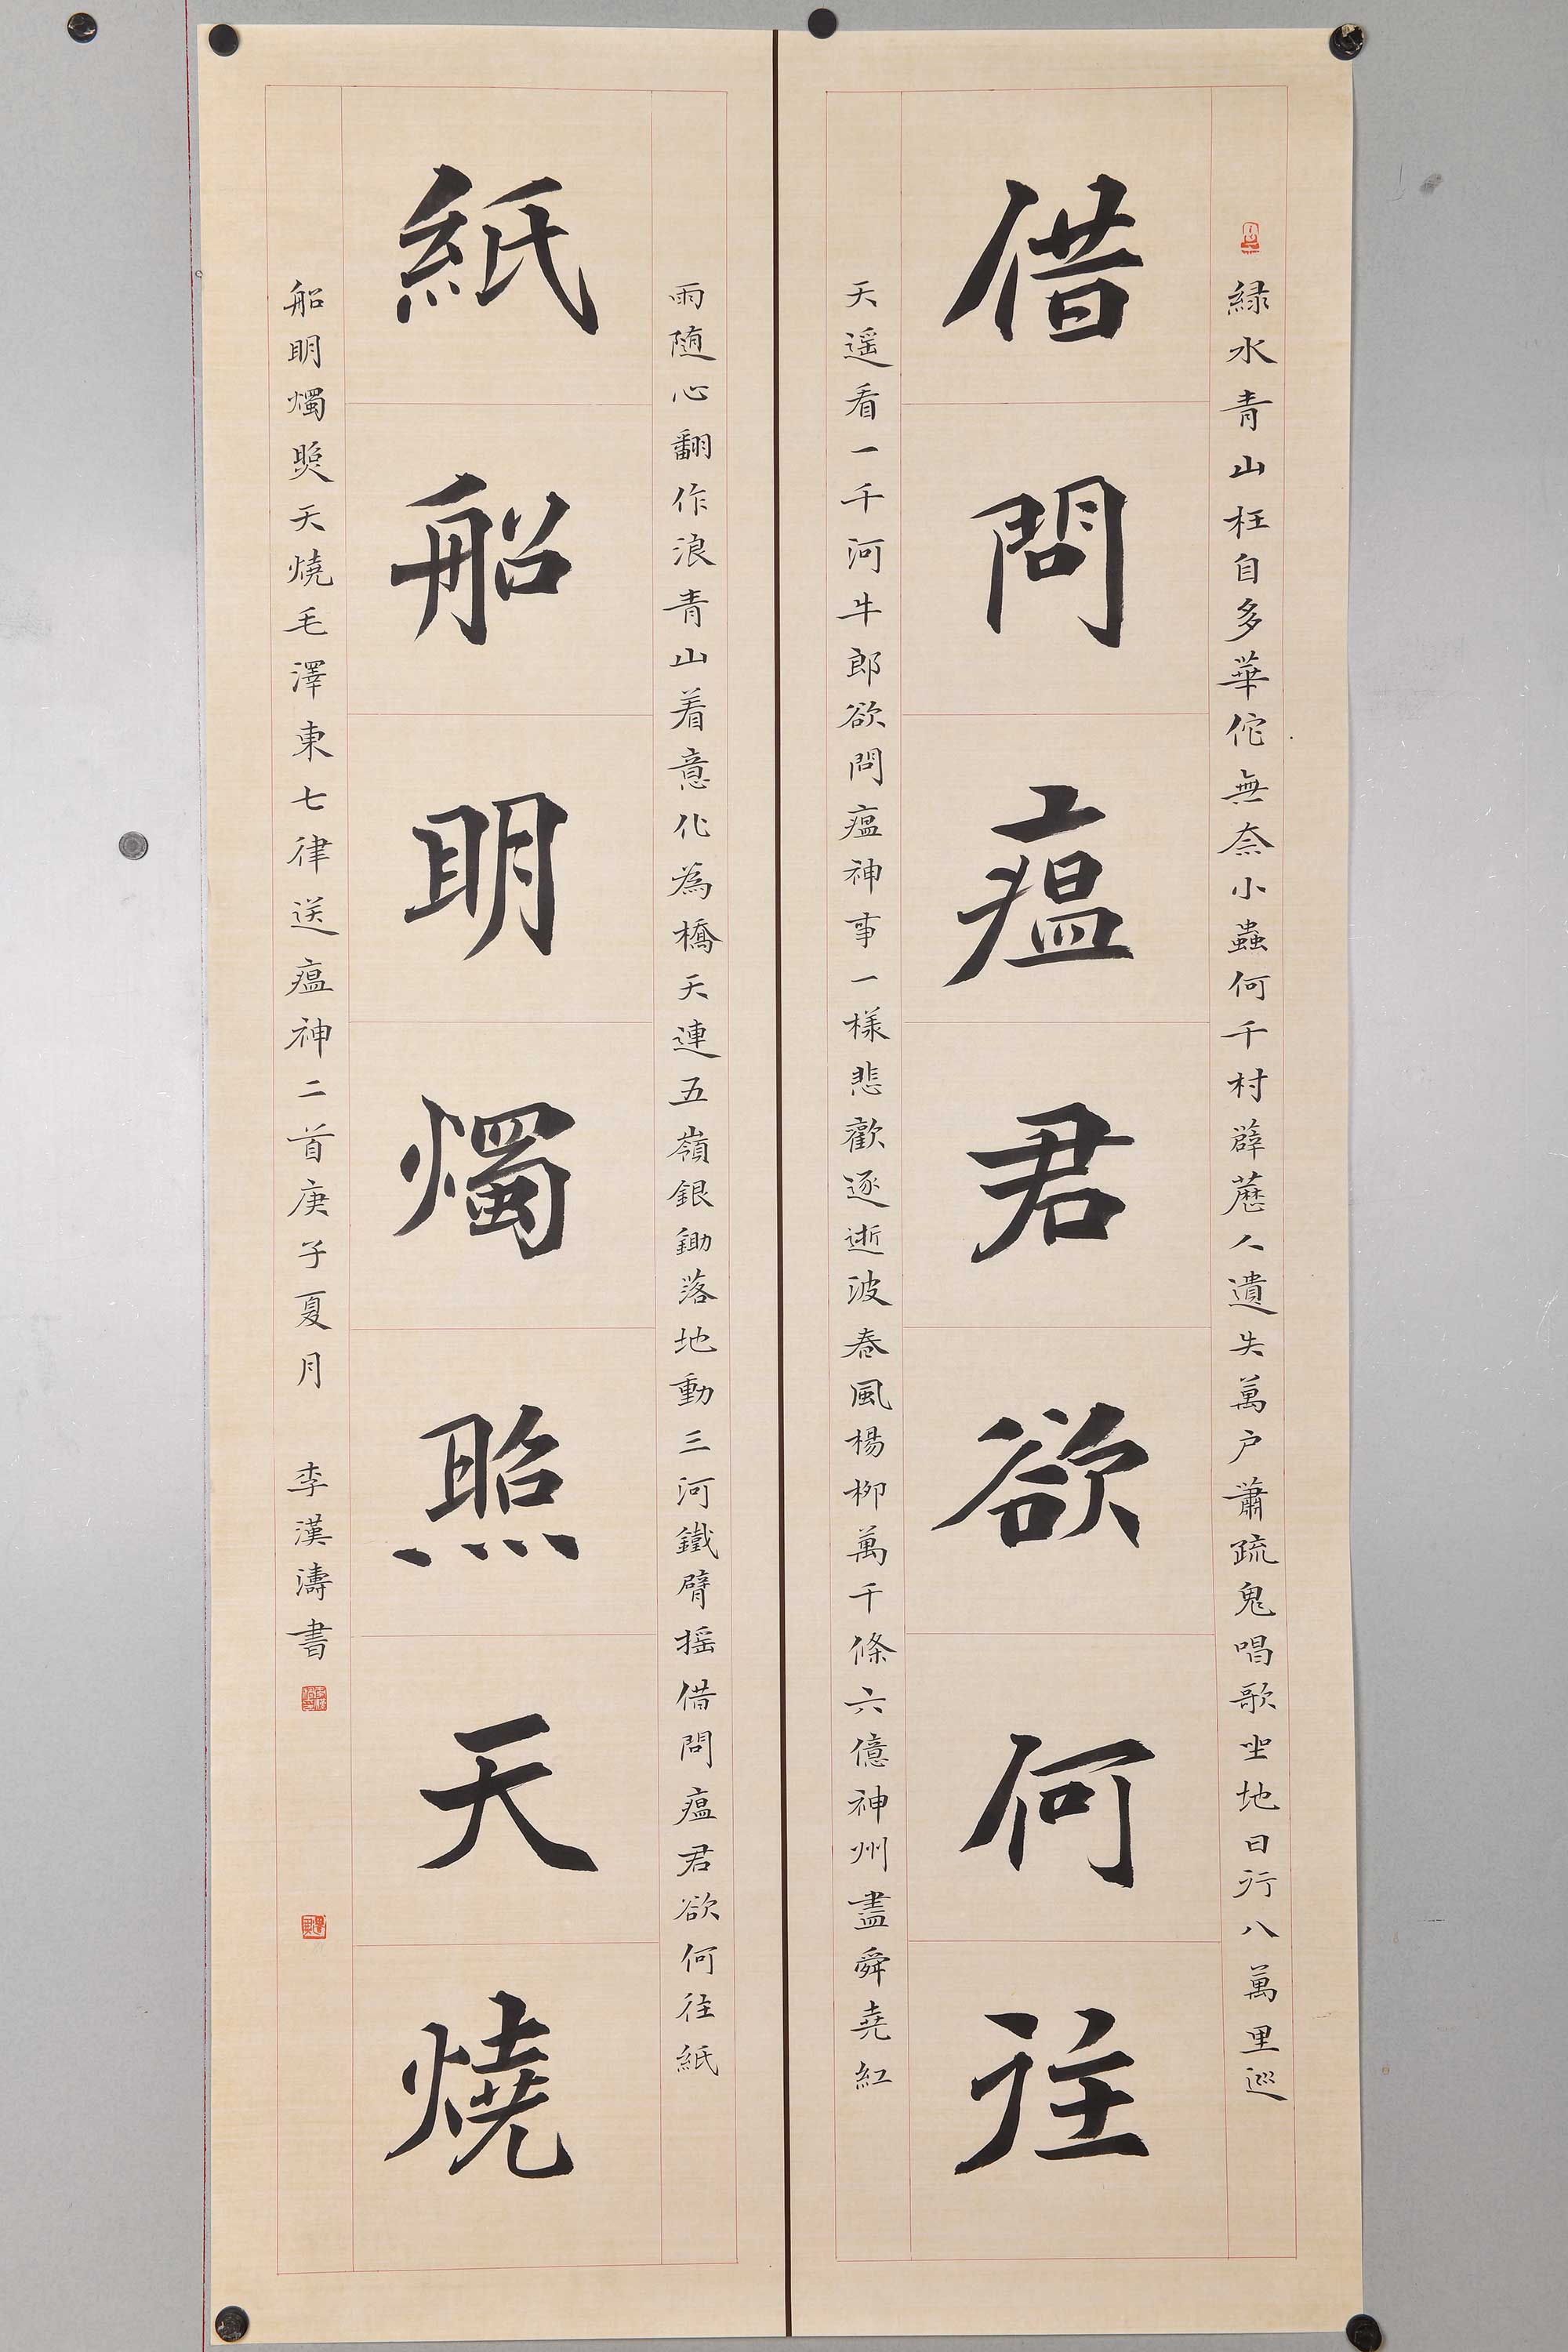 緑水青山枉自多華佗無奈小蟲何千村薜藶人遺失萬户蕭疏鬼唱歌坐地日行八萬里巡
借問瘟君欲何往
天遥看一千河牛郎欲問瘟神事一樣悲歡逐逝波春風楊柳萬千條六億神州盡舜堯紅
雨随心翻作浪青山着意化為橋天連五嶺銀鋤落地動三河鐵臂摇借問瘟君欲何往紙
紙船眀燭照天燒
船眀燭照天燒毛澤東七律送瘟神二首庚子夏月 李漢濤書